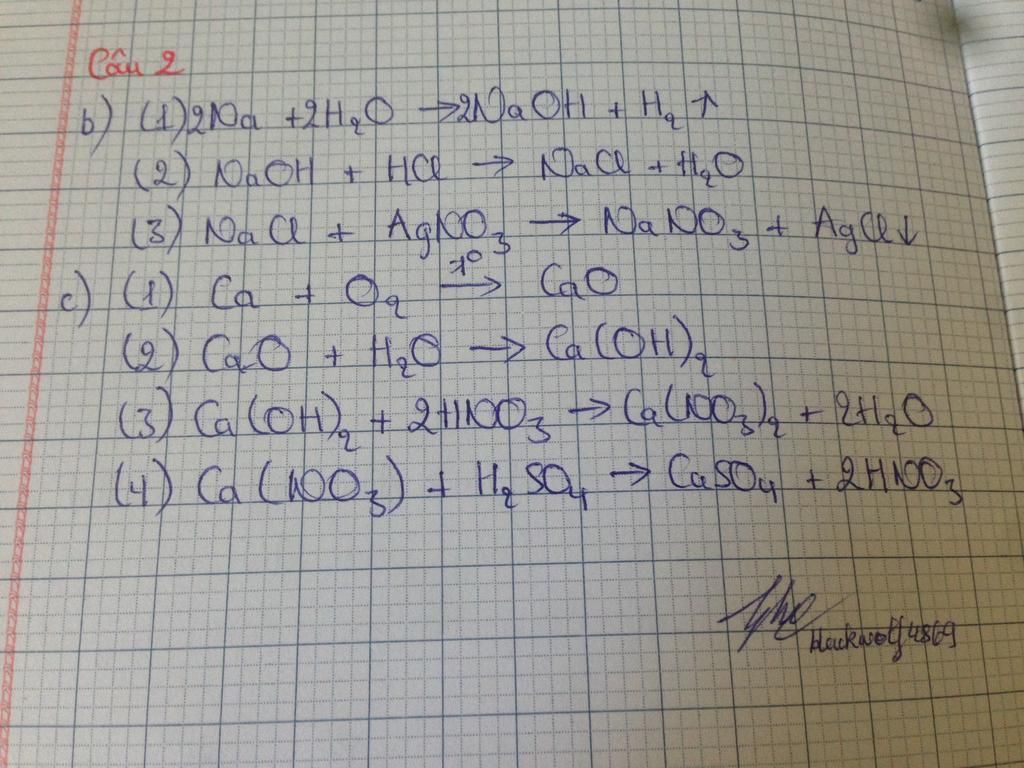 Câu 2
b) (1) 2Na + 2H₂O → 2NaOH + H₂ ↑
(2) NaOH + HCl → NaCl + H₂O
(3) NaCl + AgNO₃ → NaNO₃ + AgCl↓
c) (1) Ca + O₂ t° → CaO
(2) CaO + H₂O → Ca(OH)₂
(3) Ca(OH)₂ + 2HNO₃ → Ca(NO₃)₂ + 2H₂O
(4) Ca(NO₃) + H₂SO₄ → CaSO₄ + 2HNO₃
blackwolf4869